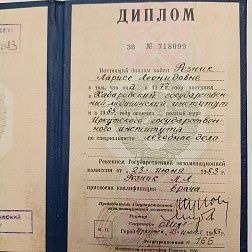 ДИПЛОМ
ЗВ № 718099
Настоящий диплом выдан Резник
Ларисе Леонидовне
в том, что она в 19 году поступила
в Хабаровский государствен-
ный медицинский институт
и в 1963 году окончила полный курс
Иркутского государствен-
ного института
по специальности лечебное дело
Решением Государственной экзаменационной
комиссии от 23 июня 1963 г.
Резник Л.Л.
присвоена квалификация врача
Председатель Государственной
экзаменационной комиссии
Ректор
Секретарь
Город Иркутск, июня 1963 г.
Регистрационный № 166